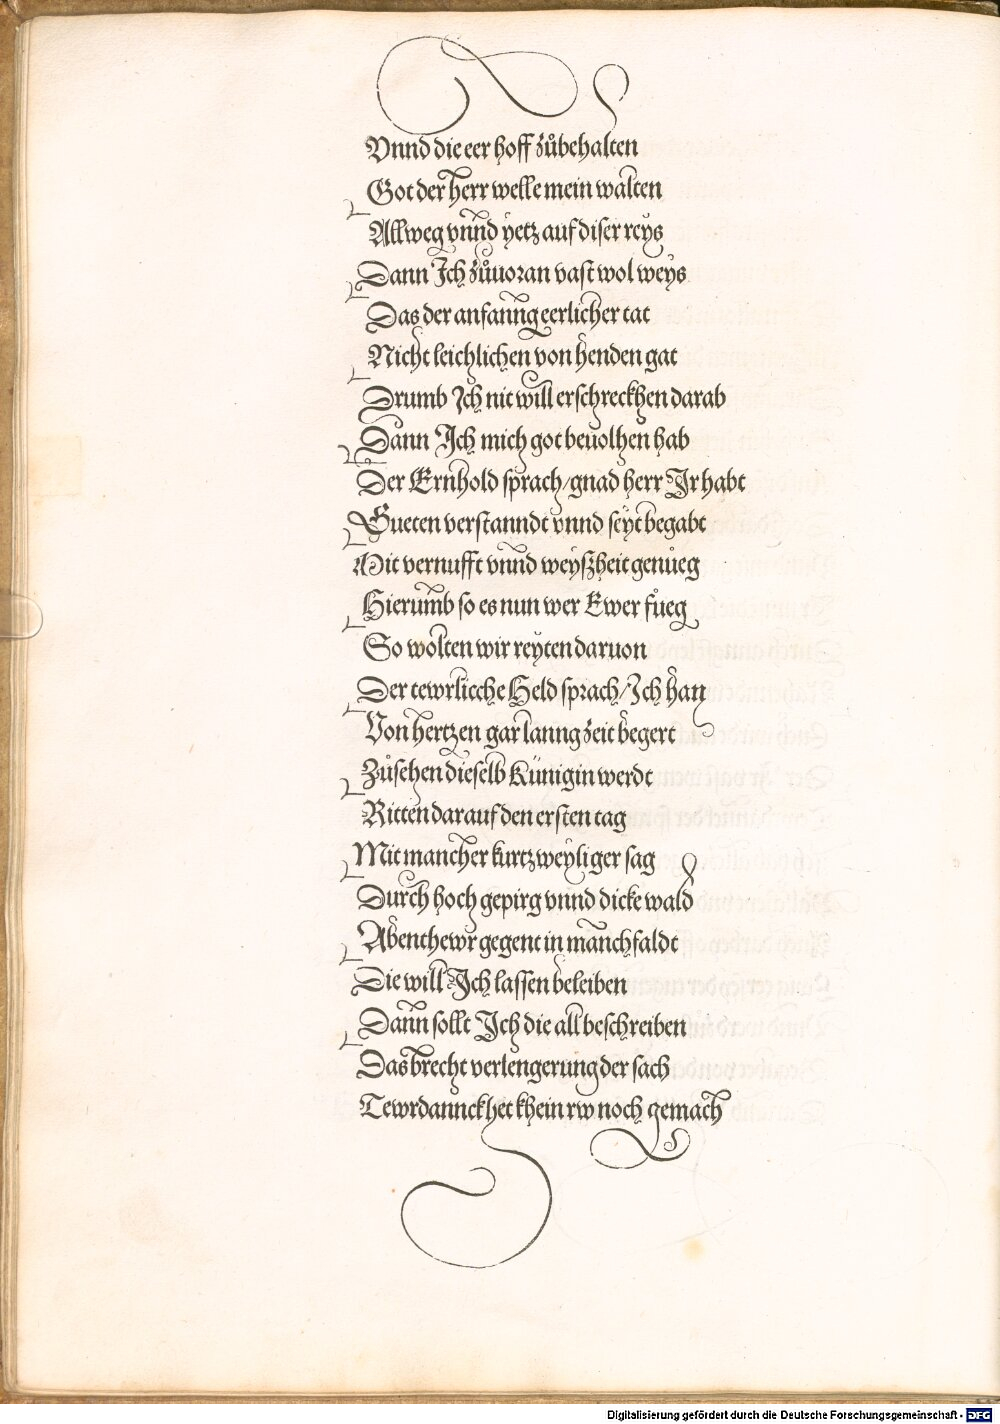 Vnnd die eer hoff zůbehalten
Got der herr welle mein walten
Allweg vnnd yetz auf diser reys
Dann Ich zůuoran vast wol weys
Das der anfanng eerlicher tat
Nicht leichlichen von henden gat
Drumb Ich nit will erschreckhen darab
Dann Ich mich got beuolhen hab
Der Ernhold sprach / gnad herr Ir habt
Gueten verstanndt vnnd seyt begabt
Mit vernufft vnnd weyszheit genůeg
Hierumb so es nun wer Ewer fůeg
So wolten wir reyten daruon
Der tewrlieche Held sprach / Ich han
Von hertzen gar lanng zeit begert
Zůsehen dieselb Künigin werdt
Ritten darauf den ersten tag
Mit mancher kurtzweyliger sag
Durch hoch gepirg vnnd dicke wald
Abenthewr gegent in manchfaldt
Die will Ich lassen beleiben
Dann sollt Ich die all beschreiben
Das brecht verlengerung der sach
Tewrdannckh het khein rw noch gemach
Digitalisierung gefördert durch die Deutsche Forschungsgemeinschaft - DFG